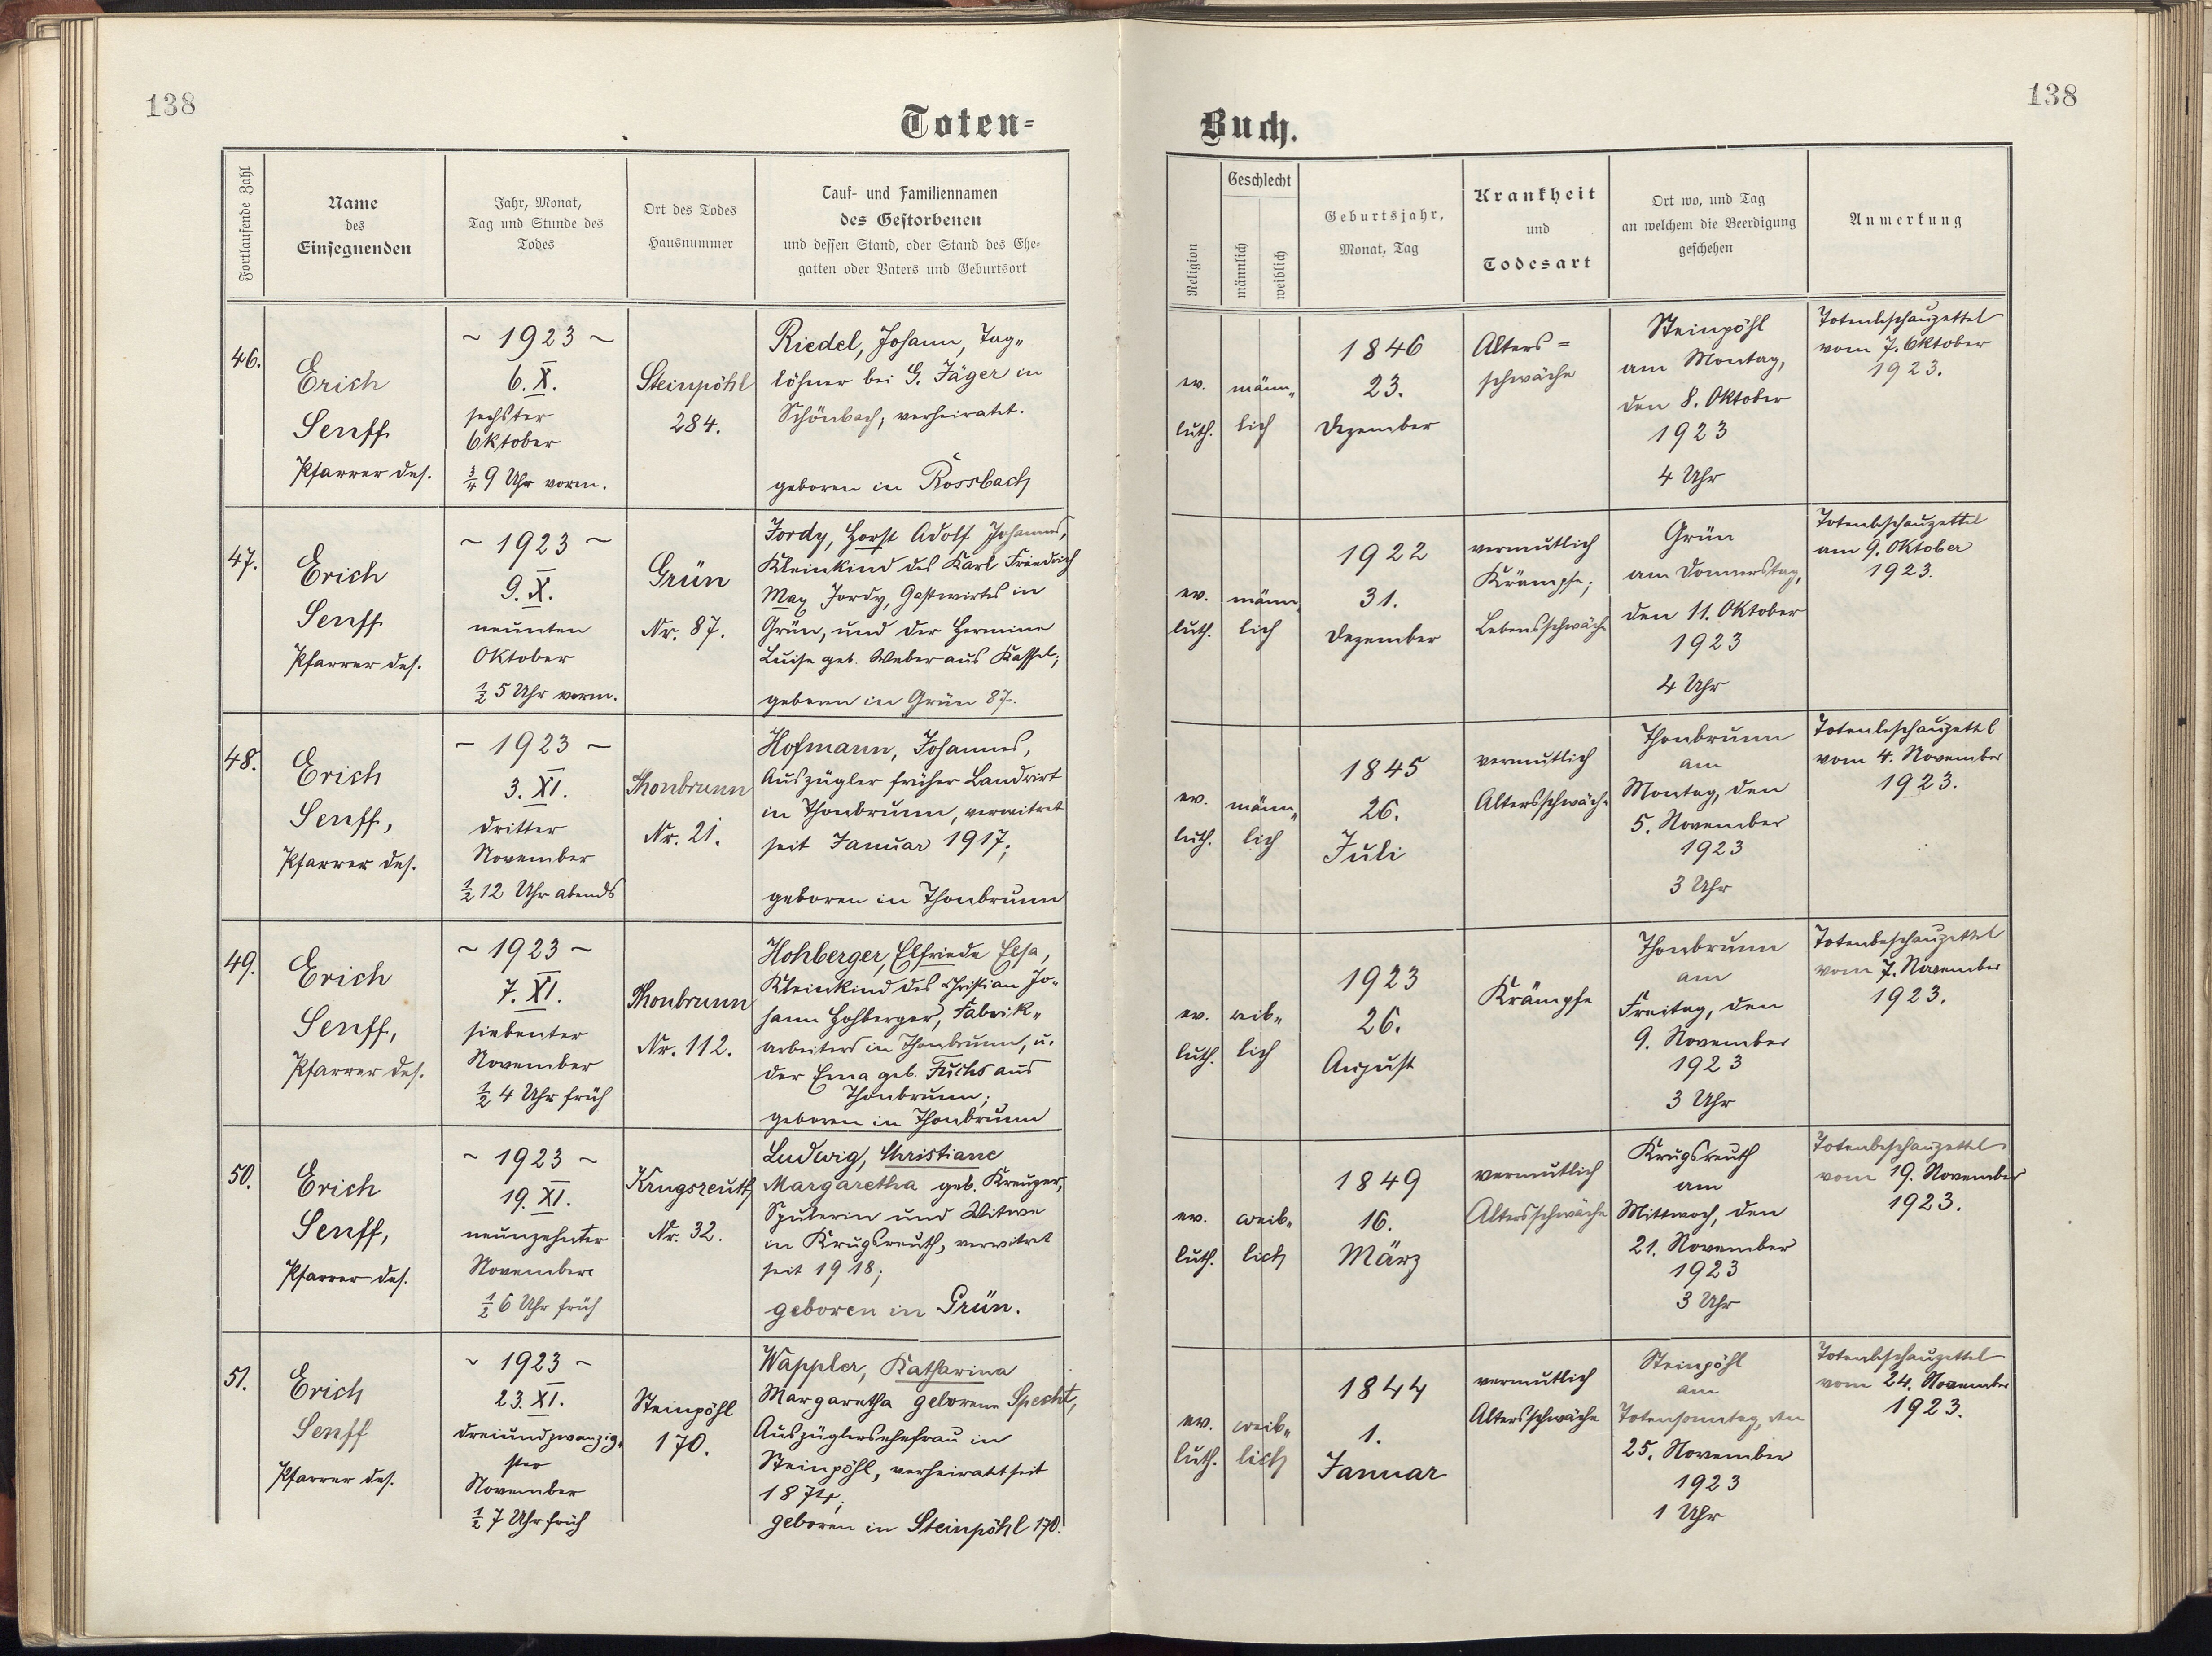 138
Toten-
Fortlaufende Zahl
Name
des
Einsegnenden
Jahr, Monat,
Tag und Stunde des
Todes
Ort des Todes
Hausnummer
Tauf- und Familiennamen
des Gestorbenen
und dessen Stand, oder Stand des Ehe-
gatten oder Vaters und Geburtsort
46.
Erich
Senff
Pfarrer des.
~ 1923 ~
6. X.
sechster
Oktober
¾ 9 Uhr vorm.
Steinpöhl
284.
Riedel, Johann, Tag„
löhner bei G. Jäger in
Schönbach; verheiratet.
geboren in Rossbach
47.
Erich
Senff
Pfarrer des.
~ 1923 ~
9. X.
neunten
Oktober
½ 5 Uhr vorm.
Grün
Nr. 87.
Jordy, Horst Adolf Johannes,
Kleinkind des Karl Friedrich
Max Jordy, Gastwirtes in
Grün, und der Hermine
Luise geb. Weber aus Kassel;
geboren in Grün 87.
48.
Erich
Senff,
Pfarrer des.
~ 1923 ~
3. XI.
dritter
November
½ 12 Uhr abends
Thonbrunn
Nr. 21.
Hofmann, Johannes,
Auszügler früher Landwirt
in Thonbrunn, verwitwet
seit Januar 1917;
geboren in Thonbrunn
49.
Erich
Senff,
Pfarrer des.
~ 1923 ~
7. XI.
siebenter
November
½ 4 Uhr früh
Thonbrunn
Nr. 112.
Hohberger, Elfriede Elsa,
Kleinkind des Christian Jo„
hann Hohberger, Fabrik„
arbeiters in Thonbrunn, u.
der Erna geb. Fuchs aus
Thonbrunn;
geboren in Thonbrunn
50.
Erich
Senff,
Pfarrer des.
~ 1923 ~
19. XI.
neunzehnter
November
½ 6 Uhr früh
Krugsreuth
Nr. 32.
Ludwig, Christiane
Margaretha geb. Kreuzer,
Spulerin und Witwe
in Krugsreuth, verwitwet
seit 1918;
geboren in Grün.
51.
Erich
Senff
Pfarrer des.
~ 1923 ~
23. XI.
dreiundzwanzig„
ster
November
½ 7 Uhr früh
Steinpöhl
170.
Wappler, Katharina
Margaretha geborene Specht,
Auszüglersehefrau in
Steinpöhl, verheiratet seit
1874;
geboren in Steinpöhl 170.
138
Buch.
Religion
Geschlecht
männlich
weiblich
Geburtsjahr,
Monat, Tag
Krankheit
und
Todesart
Ort wo, und Tag
an welchem die Beerdigung
geschehen
Anmerkung
ev.
luth.
männ„
lich
1846
23.
Dezember
Alters=
schwäche
Steinpöhl
am Montag,
den 8. Oktober
1923
4 Uhr
Totenbeschauzettel
vom 7. Oktober
1923.
ev.
luth.
männ„
lich
1922
31.
Dezember
vermutlich
Krämpfe;
Lebensschwäche
Grün
am Donnerstag,
den 11. Oktober
1923
4 Uhr
Totenbeschauzettel
am 9. Oktober
1923.
ev.
luth.
männ„
lich
1845
26.
Juli
vermutlich
Altersschwäche
Thonbrunn
am
Montag, den
5. November
1923
3 Uhr
Totenbeschauzettel
vom 4. November
1923.
ev.
luth.
weib„
lich
1923
26.
August
Krämpfe
Thonbrunn
am
Freitag, den
9. November
1923
3 Uhr
Totenbeschauzettel
vom 7. November
1923.
ev.
luth.
weib„
lich
1849
16.
März
vermutlich
Altersschwäche
Krugsreuth
am
Mittwoch, den
21. November
1923
3 Uhr
Totenbeschauzettel
vom 19. November
1923.
ev.
luth.
weib„
lich
1844
1.
Januar
vermutlich
Altersschwäche
Steinpöhl
am
Totensonntag, den
25. November
1923
1 Uhr
Totenbeschauzettel
vom 24. November
1923.